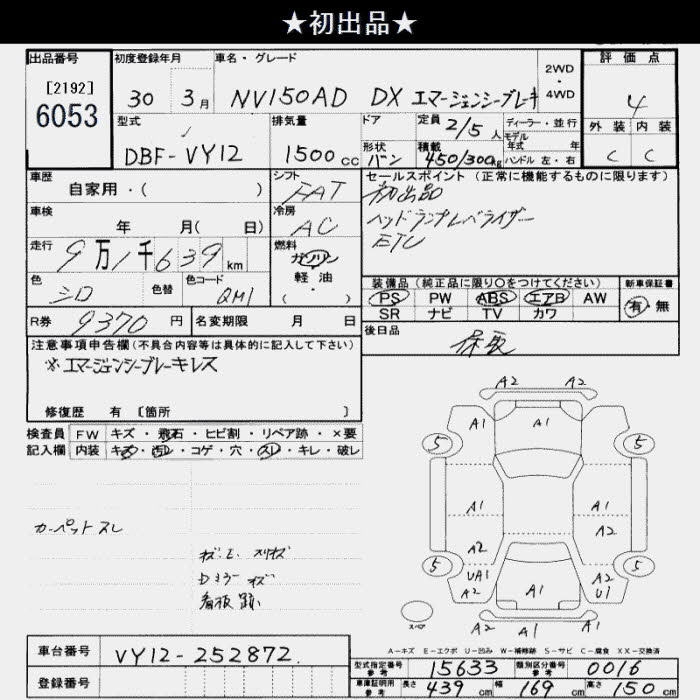 ★初出品★
出品番号
[2192]
6053
初度登録年月
30 3月
車名・グレード
NV150AD DX エマージェンシーブレーキ
2WD・4WD
評価点
4
外装 内装
C C
型式
DBF-VY12
排気量
1500cc
ドア
形状
バン
定員 2/5人
積載 450/300kg
ディーラー・並行
モデル年式 年
ハンドル 左・右
車歴
自家用・( )
シフト
FAT
車検
年 月( 日)
冷房
AC
走行
9万1千639km
燃料
ガソリン
軽・油
( ・ )
色
シロ
色替
色コード
QM1
R券 9370円
名変期限 月 日
セールスポイント(正常に機能するものに限ります)
初出品
ヘッドランプレベライザー
ETC
装備品(純正品に限り○をつけてください)
PS PW ABS エアB AW
SR ナビ TV カワ
新車保証書
有・無
後日品
保取
注意事項申告欄(不具合内容等は具体的に記入して下さい)
※エマージェンシーブレーキレス
修復歴 有 〔箇所 〕
検査員記入欄
FW キズ・飛石・ヒビ割・リペア跡・×要
内装 キズ・汚レ・コゲ・穴・スレ・キレ・破レ
カーペットスレ
キズ・E スリキズ
Dミラーキズ
看板跡
A2 A2
A1 A1 A1
5 5
A1 A1
A2 A2
5 5
UA1 A2
A2 A1 U1
スペア
A2 A1 A1
A-キズ E-エクボ U-凹み W-補修跡 S-サビ C-腐食 XX-交換済
車台番号 VY12-252872
登録番号
型式指定番号参考 15633
類別区分番号参考 0016
車庫証明用参考 長さ 439cm 幅 169cm 高さ 150cm